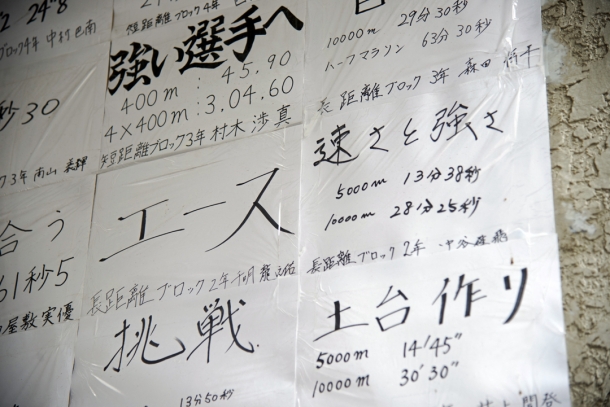 2 24"8
ブロック4年 中村 巴南
秒30
ク3年 南山
合う
61秒5
屋敷実優
短距離ブロック4年
強い選手へ
400m : 45.90
4×400m : 3.04.60
短距離ブロック3年 村木 渉真
エース
長距離ブロック2年
挑戦
13分50秒
10000m 29分30秒
ハーフマラソン 63分30秒
長距離ブロック 3年 森田 将平
速さと強さ
5000m 13分38秒
10000m 28分25秒
長距離ブロック 2年 中谷
土台作り
5000m 14'45"
10000m 30'30"